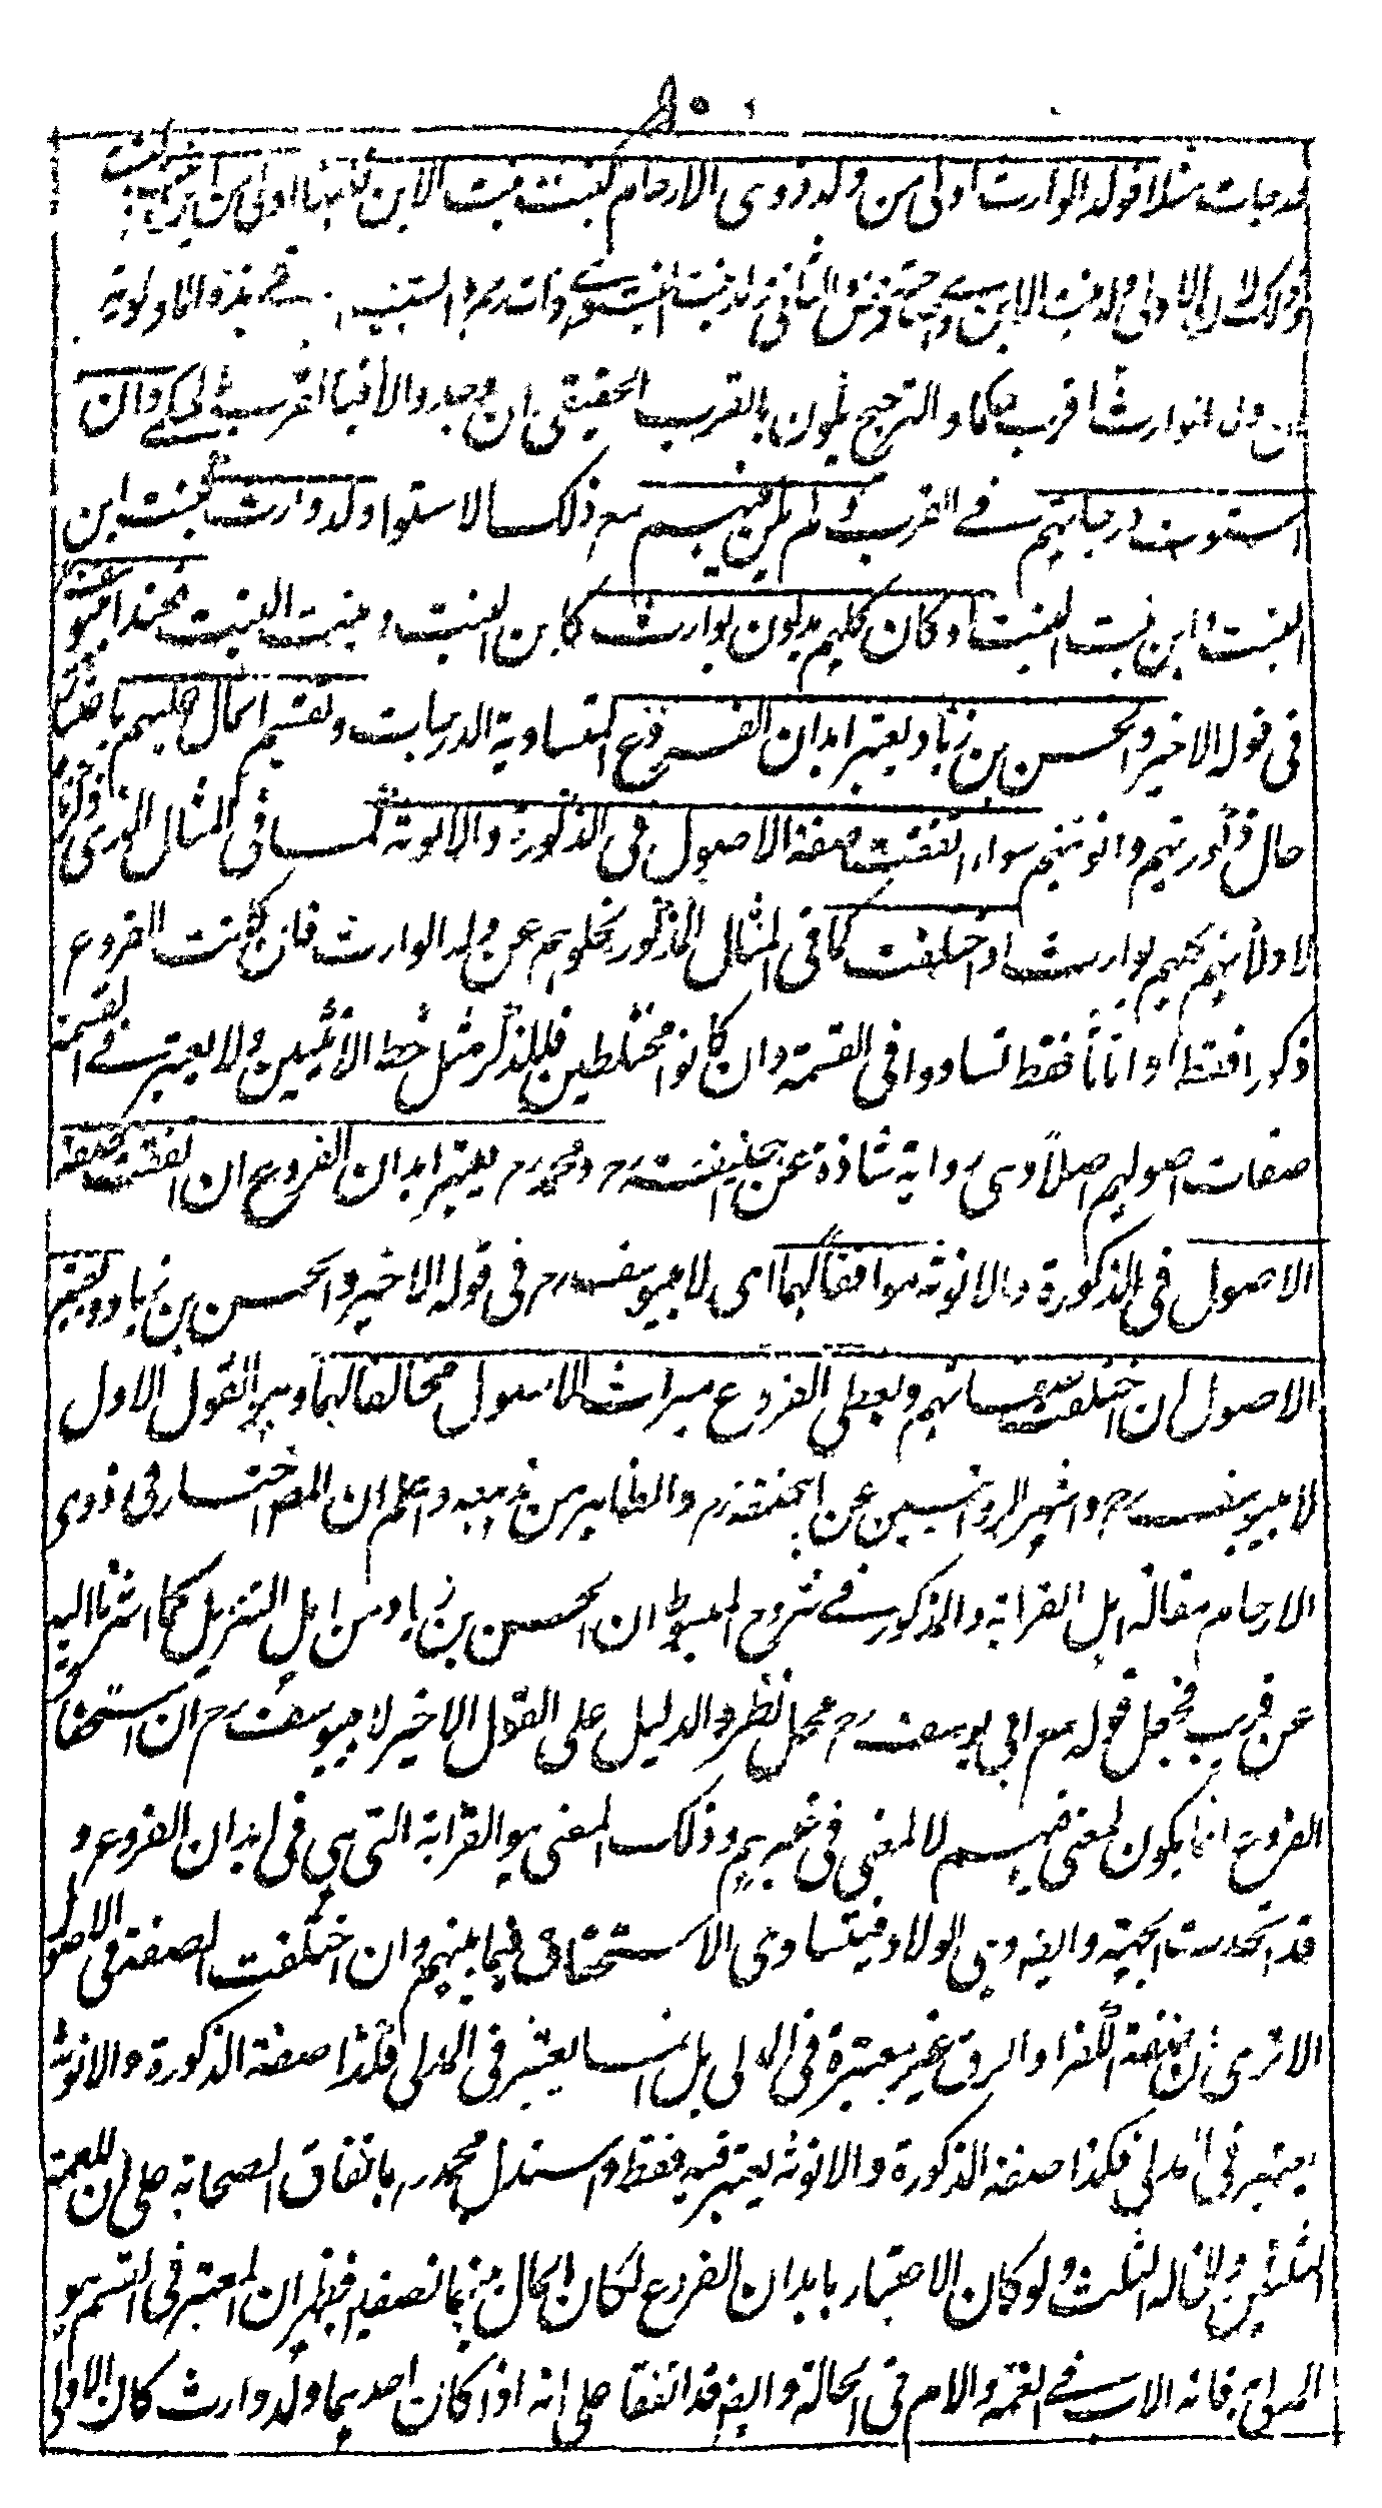 درجات مثلا فولد الوارث اولى من ولد ذوى الارحام كبنت بنت الابن فانها اولى من ابن بنت البنت
وذلك لان الاولى ولد بنت الابن وهى صاحبة فرض والثانى ولد بنت البنت وهى ذات رحم والسبب فى هذه الاولوية
ان ولد الوارث اقرب حكما والترجيح يكون بالقرب الحقيقى ان وجد والا فبالقرب الحكمى وان
استوت درجاتهم فى القرب ولم يكن فيهم مع ذلك الاستواء ولد وارث كبنت ابن
البنت وابن بنت البنت او كان كلهم يدلون بوارث كابن البنت وبنت البنت فعند ابى يوسف
فى قوله الاخير والحسن بن زياد يعتبر ابدان الفروع المتساوية الدرجات ويقسم المال عليهم باعتبار
حال ذكورتهم وانوثتهم سواء اتفقت صفة الاصول فى الذكورة والانوثة كما فى المثال الذى
لادلائهم كلهم بوارث او اختلفت كما فى المثال المذكور لخلوهم عن ولد الوارث فان كانت الفروع
ذكورا فقط او اناثا فقط تساووا فى القسمة وان كانوا مختلطين فللذكر مثل حظ الانثيين ولا يعتبر فى القسمة
صفات اصولهم اصلا وهى رواية شاذة عن ابيحنيفة رح ومحمد رح يعتبر ابدان الفروع ان اتفقت صفة
الاصول فى الذكورة والانوثة موافقا لهما اى لابيوسف رح فى قوله الاخير والحسن بن زياد ويعتبر
الاصول ان اختلفت صفاتهم ويعطى الفروع ميراث الاصول مخالفا لهما وهو القول الاول
لابيوسف رح واشهر الروايتين عن ابيحنيفة رح والظاهر من مذهبه واعلم ان المص اختار فى ذوى
الارحام مقالة اهل القرابة والمذكور فى شروح المبسوط ان الحسن بن زياد من اهل التنزيل كما اشرنا اليه
عن قريب فجعل قوله مع ابى يوسف رح محل نظر والدليل على القول الاخير لابيوسف رح ان استحقاق
الفروع انما يكون لمعنى فيهم لا لمعنى فى غيرهم وذلك المعنى هو القرابة التى هى فى ابدان الفروع و
قد اتحدت الجهة وايضا وهى الولاد فيتساوى الاستحقاق فيما بينهم وان اختلفت الصفة فى الاصول
الا ترى ان صفة الكفر او الرق غير معتبرة فى المدلى به بل انما يعتبر فى المدلى فكذا صفة الذكورة والانوثة
يعتبر فى المدلى فكذا صفة الذكورة والانوثة يعتبر فيه فقط واستدل محمد رح باتفاق الصحابة على ان للعمة
الثلثين وللخالة الثلث ولو كان الاعتبار بابدان الفروع لكان المال بينهما نصفين فظهر ان المعتبر فى القسم هو
المدلى به فانه الاب فى العمة والام فى الخالة وايضا قد اتفقا على انه اذا كان احدهما ولد وارث كان الاولى